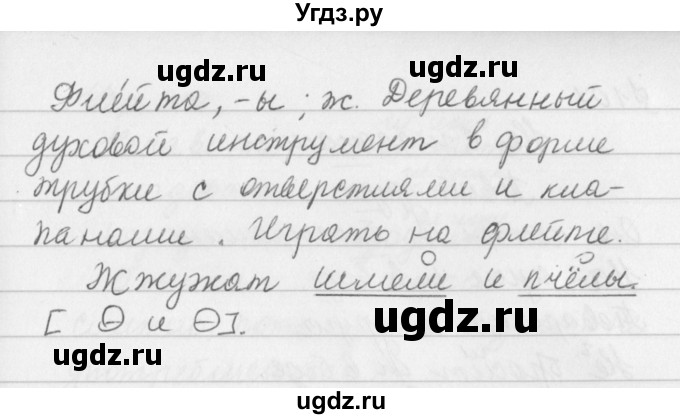 Угдз.ру
ugdz.ru ugdz.ru
Флейта, -ы; ж. Деревянный
духовой инструмент в форме
ugdz.ru
трубки с отверстиями и кла-
панами. Играть на флейте.
ugdz.ru ugdz.ru
Жжужат шмели и пчёлы.
[О и О].
ugdz.ru
ugdz.ru ugdz.ru